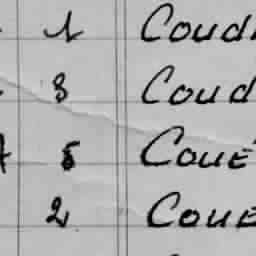 1 Coud
8 Coud
5 Coue
2 Coue